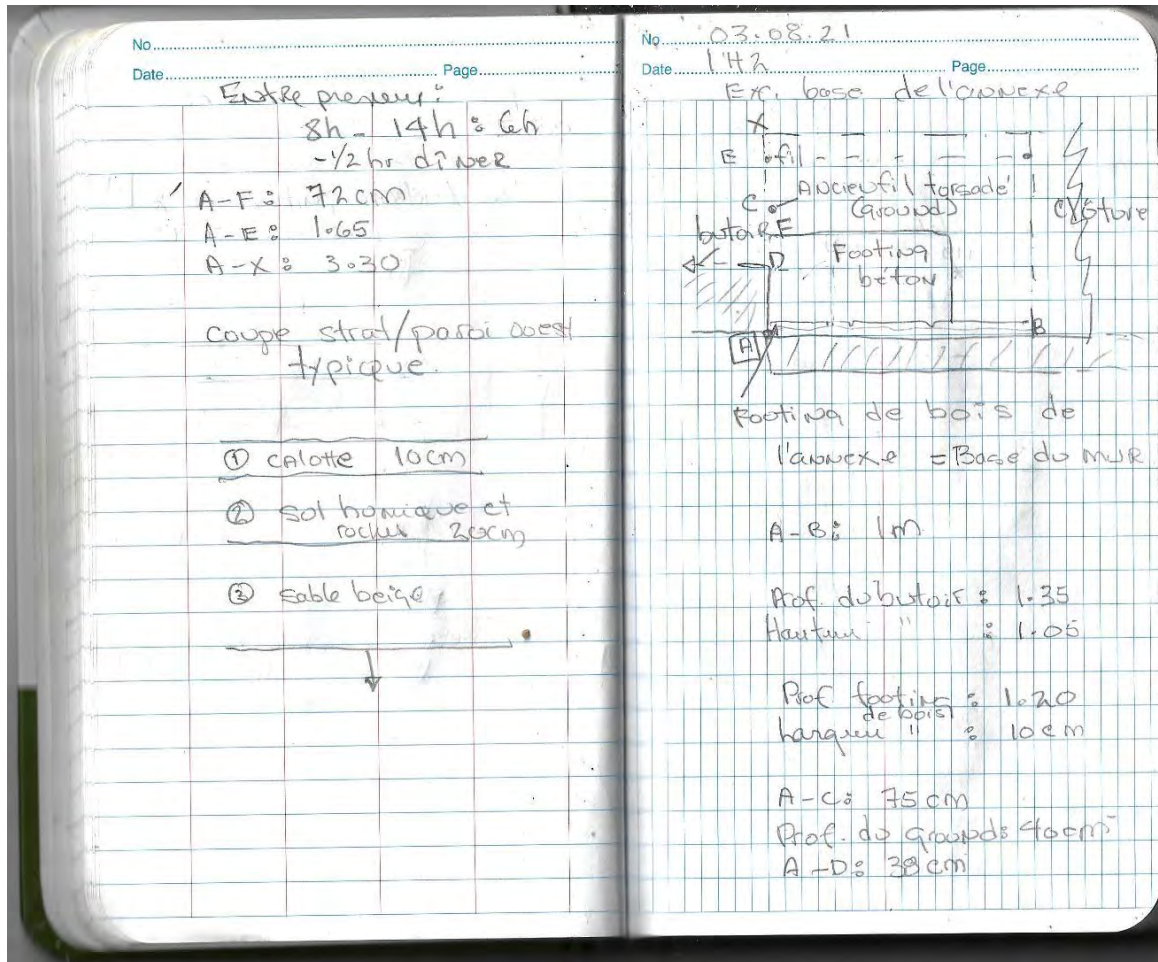 No
Date Page
Entrepreneur:
8h - 14h : 6h
-1/2 hr dîner
A-F: 72 cm
A-E: 1.65
A-X: 3.30
coupe strat/paroi ouest
typique.
① calotte 10cm
② sol humique et
roches 20cm
③ sable beige
No 03.08.21
Date 1H2 Page
Exc. base de l'annexe
X
E fil
Ancien fil torsadé
C (ground) clôture
butoir F
D Footing
béton
B
A
Footing de bois de
l'annexe = Base du mur
A-B: 1m
Prof. du butoir : 1.35
Hauteur " : 1.05
Prof footing : 1.20
de bois
Largeur " : 10cm
A-C: 75cm
Prof. du ground: 40cm
A-D: 38cm